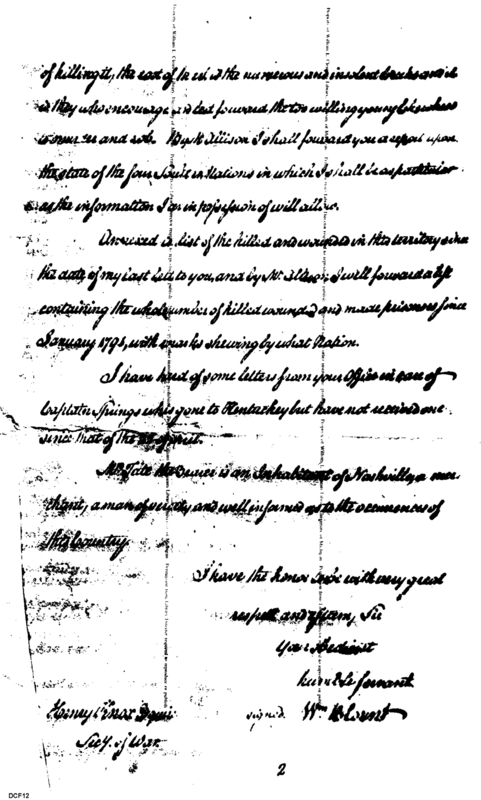 of killing it, the rest of to us is the numerous and insolent and it
is they who encourage and led forward the too willing young
to murder and rob. By Mr Allison I shall forward you a report upon
the state of the four Southern Nations in which I shall be as particular
as the information I am in possession of will allow.
Annexed is a list of the killed and wounded in this territory since
the date of my last list to you, and by Mr. Allison, I will forward a list
containing the whole number of killed wounded and made prisoners since
January 1791, with marks shewing by what Nation.
I have heard of some letters from your Office in care of
Captain Springs who is gone to Kentuckey but have not received one
since that of the of april.
Mr Tate the Bearer is an Inhabitant of Nashville, a mer-
chant, a man of veracity and well informed as to the occurrences of
this Country.
I have the honor to be with very great
respect and esteem, Sir
Your Obedient
humble Servant
Henry Knox Esquire signed Wm Blount
Secy. of War
2
DCF12